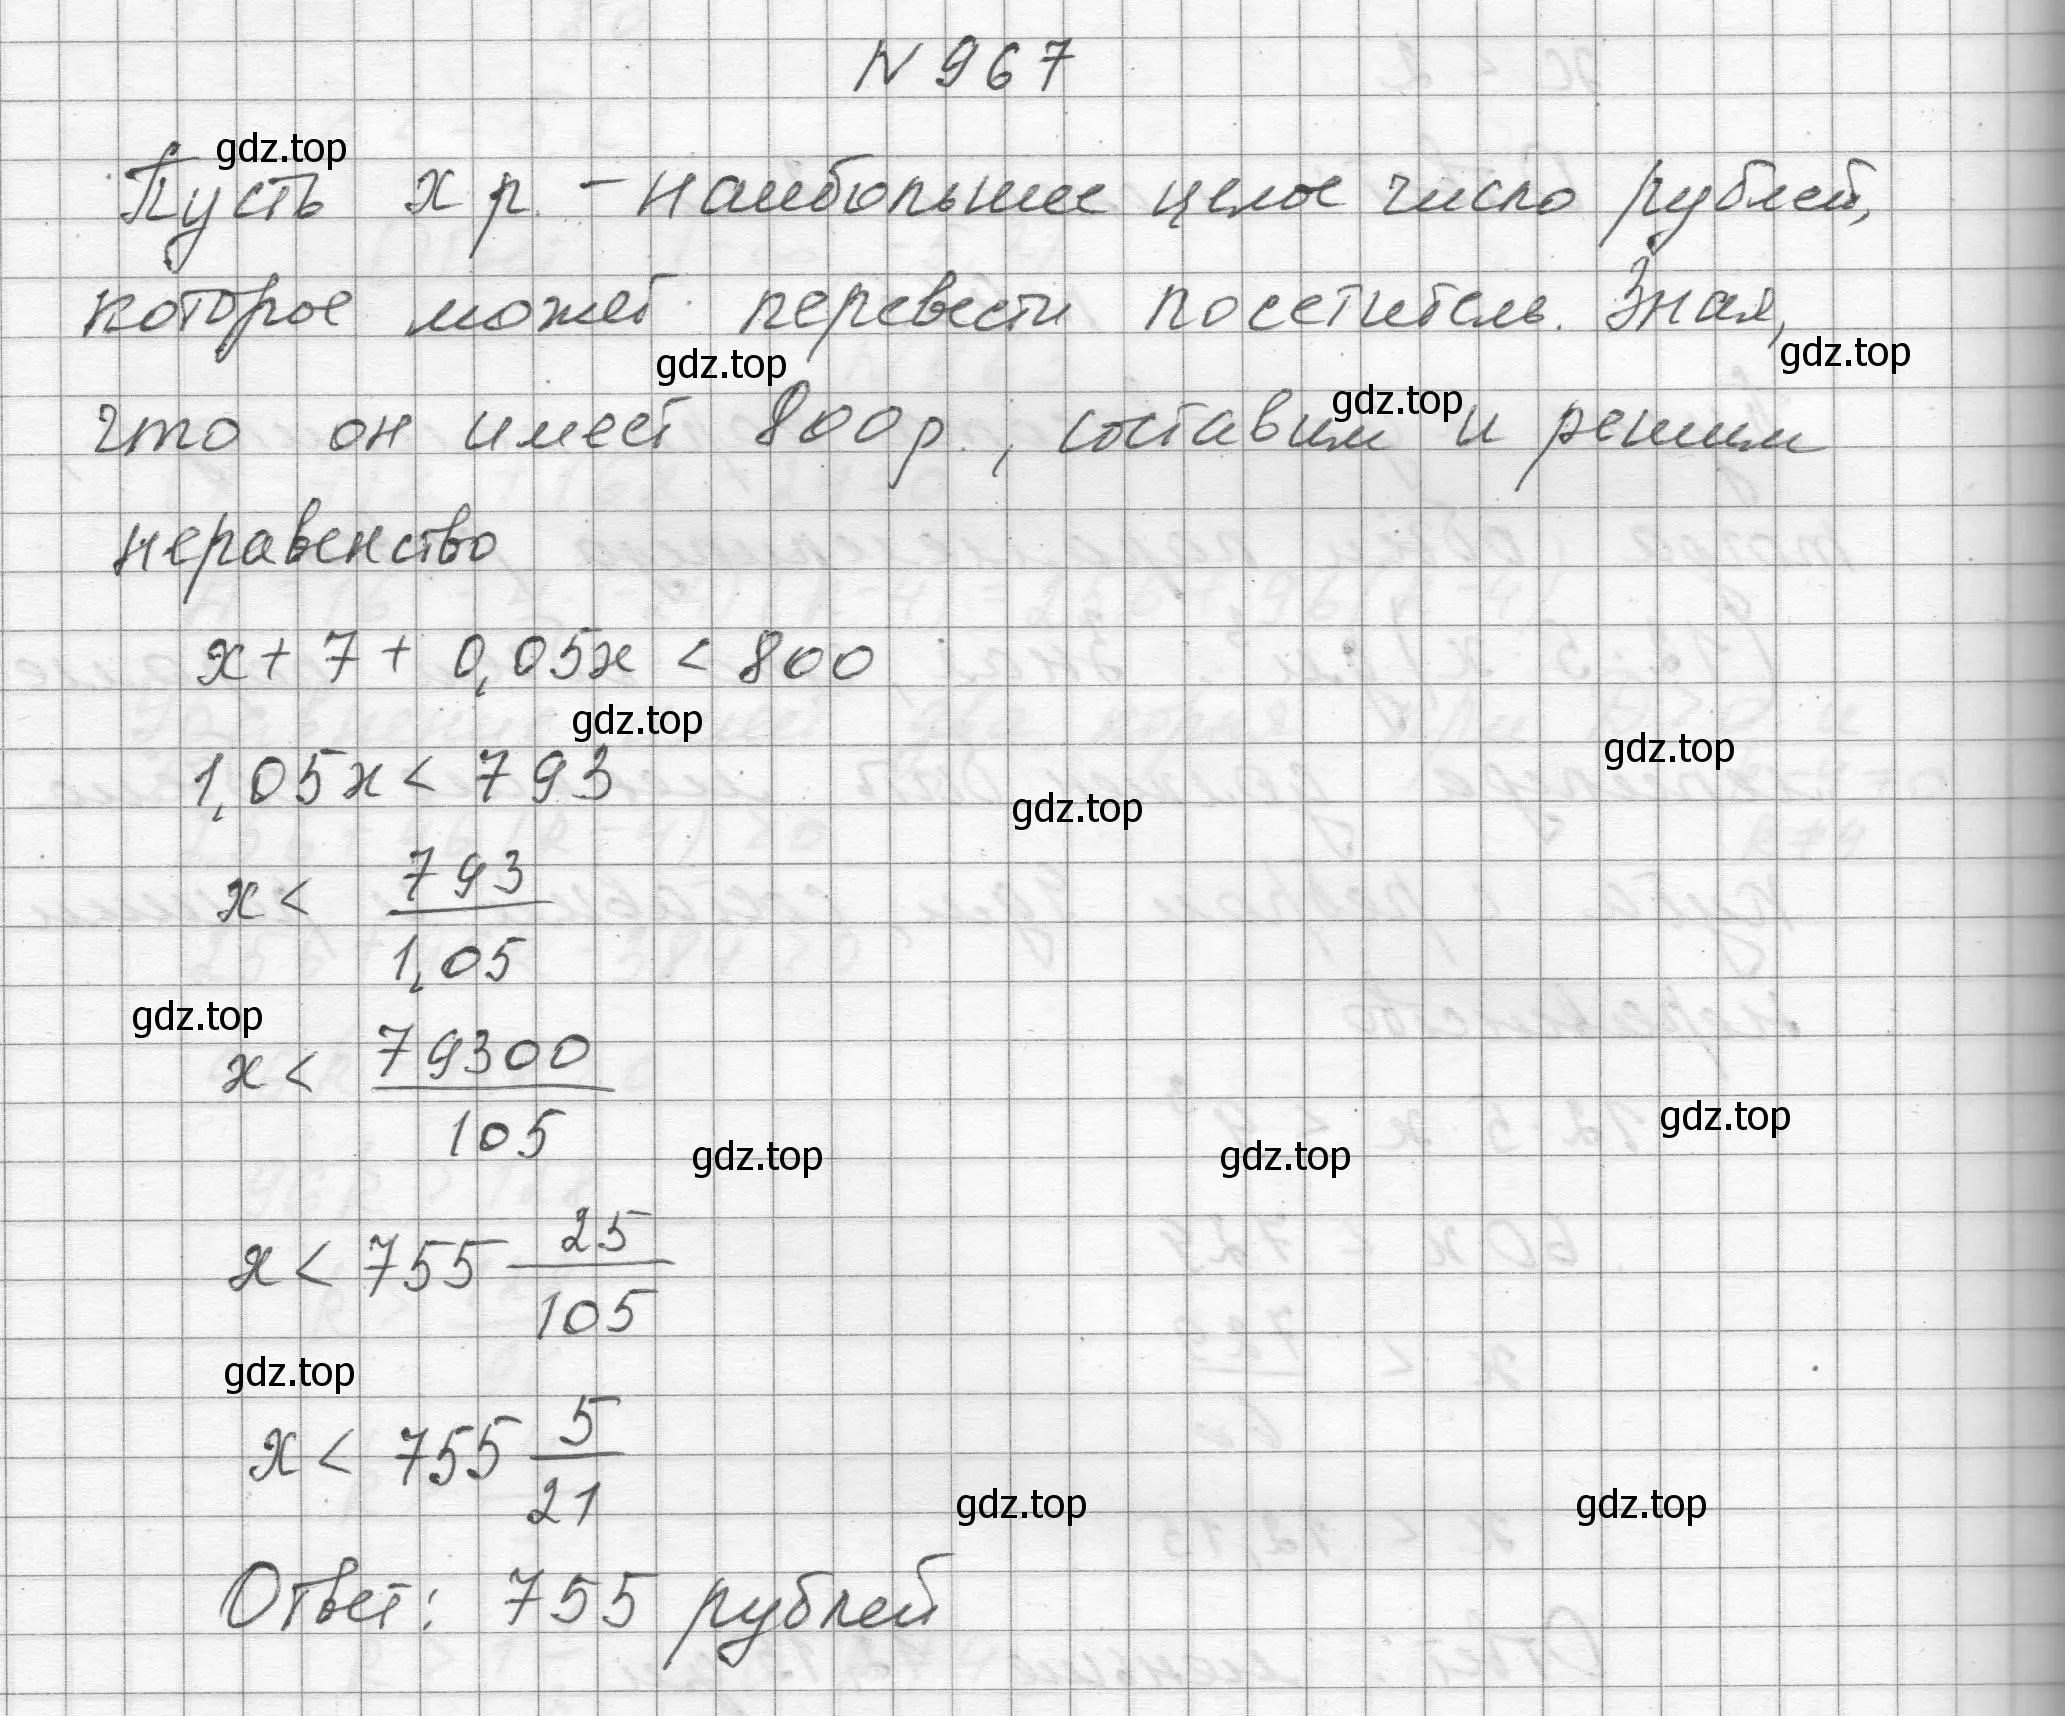 N 967
gdz.top
Пусть x р. - наибольшее целое число рублей,
которое может перевести посетитель. Зная,
gdz.top
gdz.top
gdz.top
что он имеет 800 р., составим и решим
неравенство
x + 7 + 0,05x < 800
gdz.top
gdz.top
1,05x < 793
gdz.top
x < 793/1,05
gdz.top
x < 79300/105
gdz.top
gdz.top
gdz.top
x < 755 25/105
gdz.top
x < 755 5/21
gdz.top
gdz.top
Ответ: 755 рублей